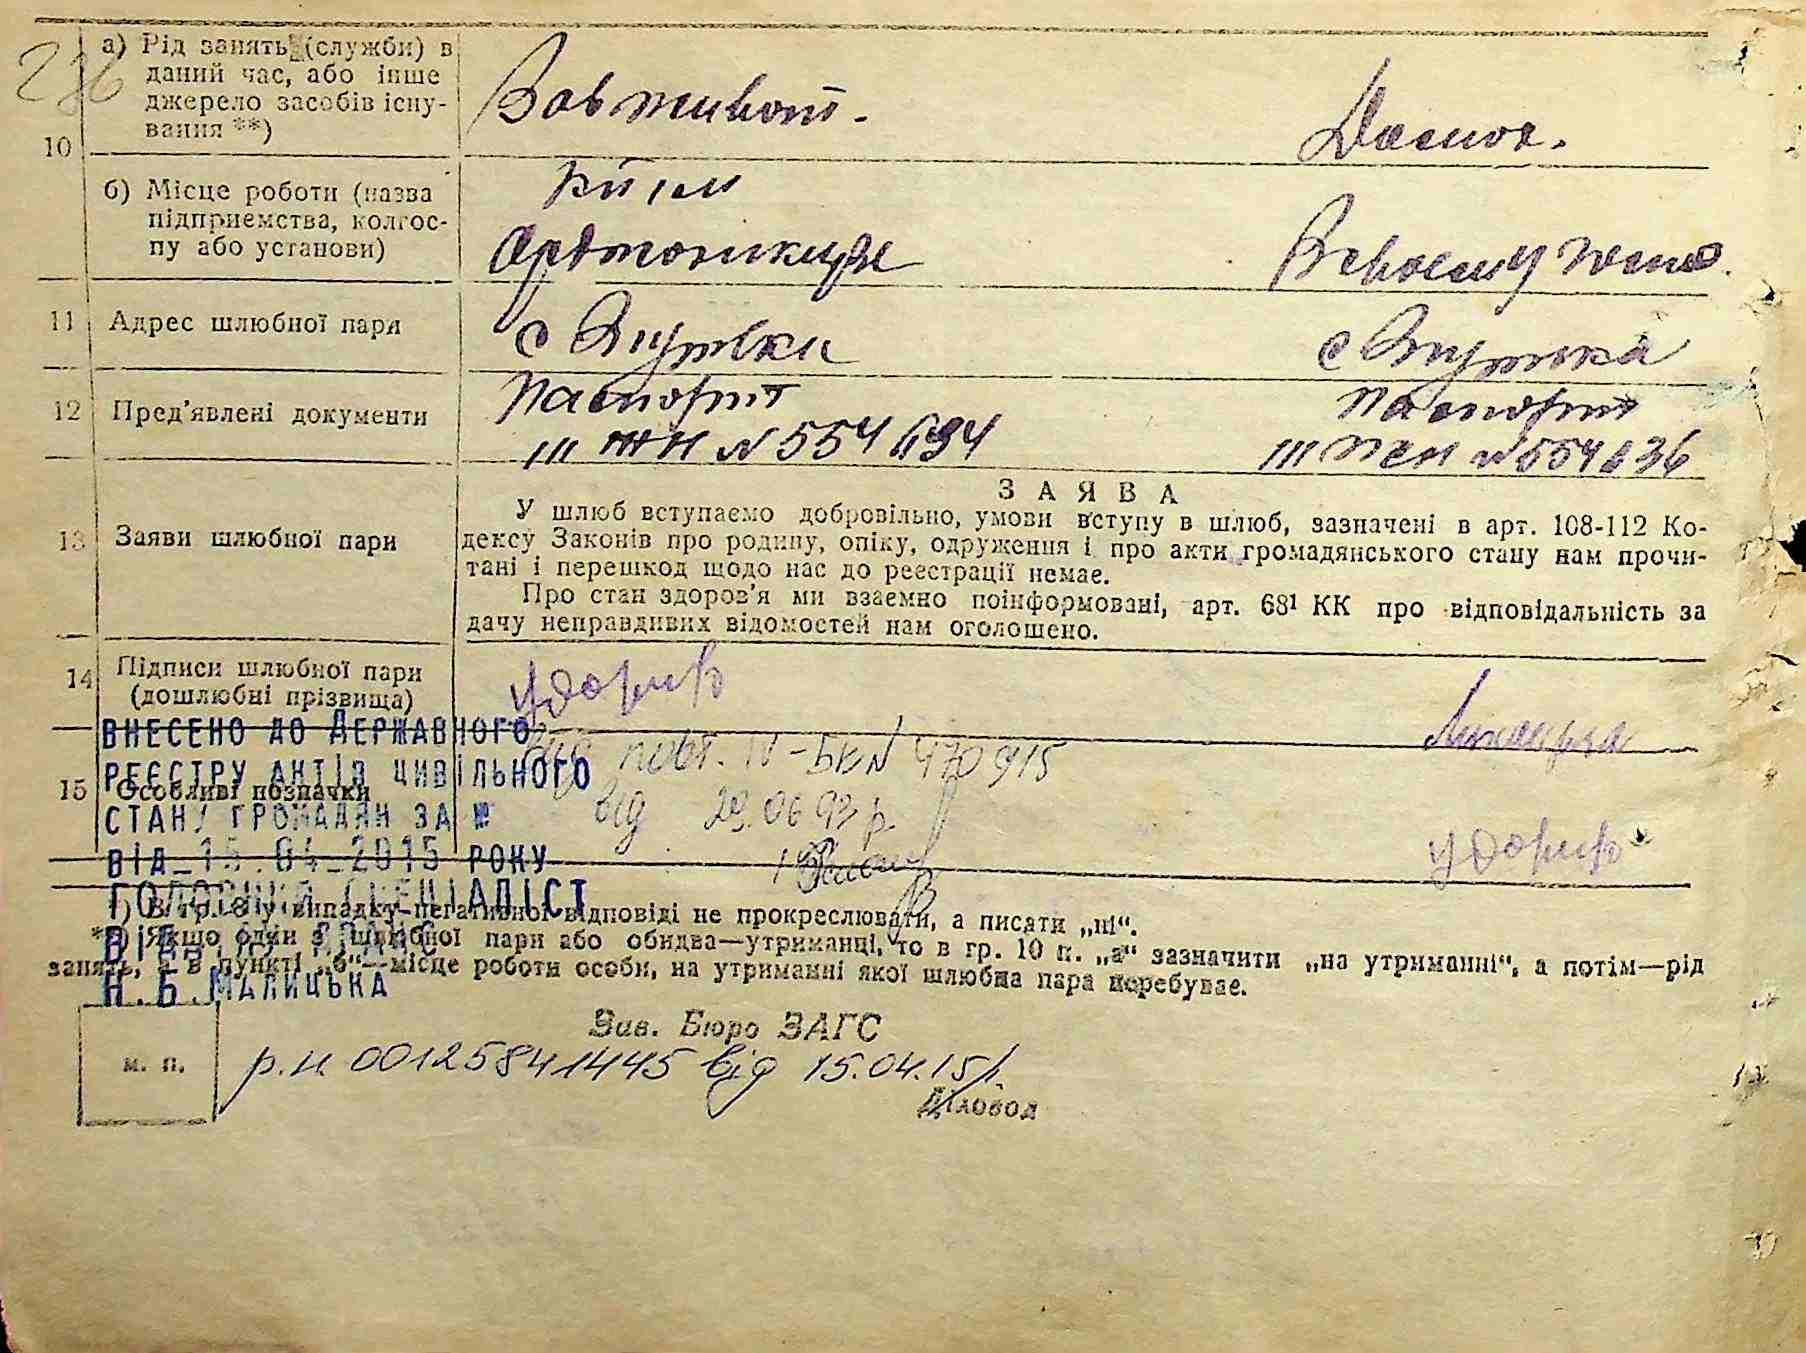 236
а) Рід занять (служби) в
даний час, або інше
джерело засобів існу-
вання **)
Зав
10
б) Місце роботи (назва
підприємства, колгос-
пу або установи)
11 Адрес шлюбної пари
с с
12 Пред’явлені документи
Паспорт Паспорт
III ЖН N 554 634 III ЖН N 554 636
13 Заяви шлюбної пари
ЗАЯВА
У шлюб вступаємо добровільно, умови вступу в шлюб, зазначені в арт. 108-112 Ко-
дексу Законів про родину, опіку, одруження і про акти громадянського стану нам прочи-
тані і перешкод щодо нас до реєстрації немає.
Про стан здоров’я ми взаємно поінформовані, арт. 68¹ КК про відповідальність за
дачу неправдивих відомостей нам оголошено.
14 Підписи шлюбної пари
(дошлюбні прізвища)
ВНЕСЕНО ДО ДЕРЖАВНОГО
РЕЄСТРУ АКТІВ ЦИВІЛЬНОГО
СТАНУ ГРОМАДЯН ЗА №
ВІД 15.04.2015 РОКУ
ГОЛОВНИЙ СПЕЦІАЛІСТ
Н.Б.МАЛИЦЬКА
15 Особливі позначки
повт. IV-БК N 470915
від 29.06.93 р.
*) В гр. випадку негативної відповіді не прокреслювати, а писати „ні“.
**) Якщо один з шлюбної пари або обидва—утриманці, то в гр. 10 п. „а“ зазначити „на утриманні“, а потім—рід
занять, а в пункті „б“—місце роботи особи, на утриманні якої шлюбна пара перебуває.
Зав. Бюро ЗАГС
м. п.
р.н 00125841445 від 15.04.15р.
Діловод